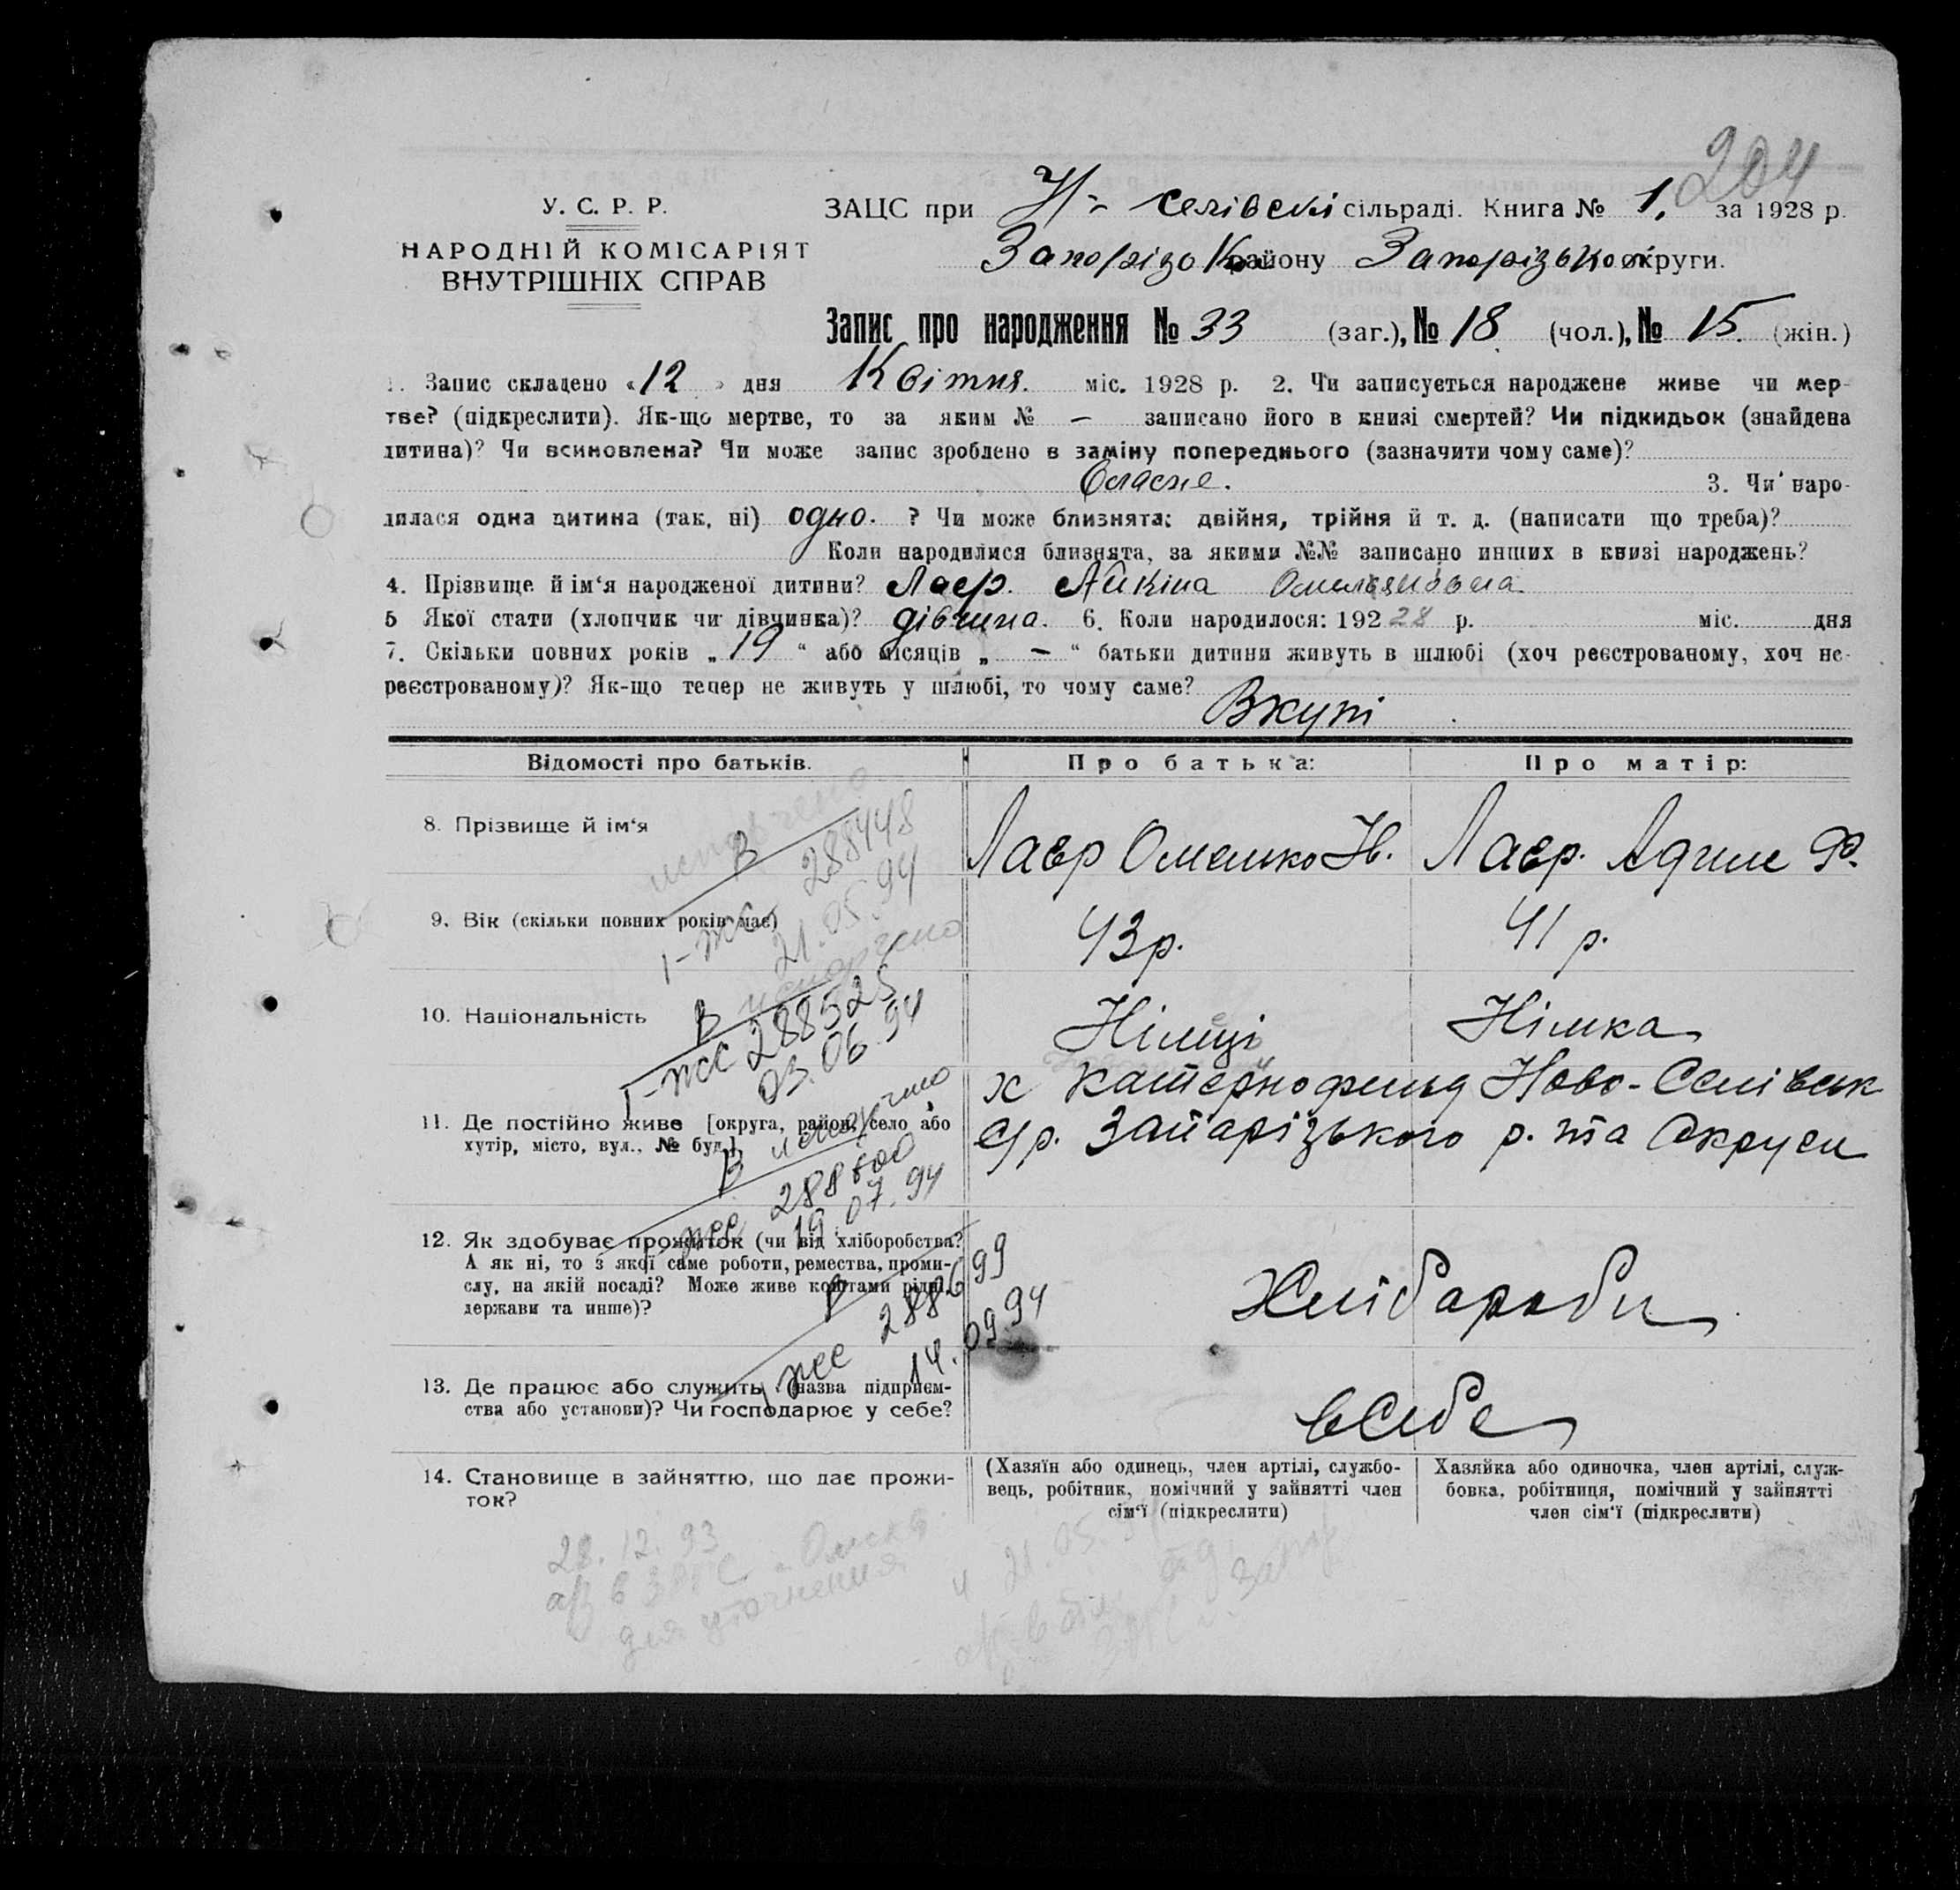 204
У. С. Р. Р.
НАРОДНІЙ КОМІСАРІЯТ
ВНУТРІШНІХ СПРАВ
ЗАЦС при Н= селівскі сільраді. Книга № 1. за 1928 р.
Запорізьк району Запорізько округи.
Запис про народження № 33 (заг.), № 18 (чол.), № 15. (жін.)
1. Запис складено «12» дня Квітня. міс. 1928 р. 2. Чи записується народжене живе чи мер-
тве? (підкреслити). Як-що мертве, то за яким № – записано його в книзі смертей? Чи підкидьок (знайдена
дитина)? Чи всиновлена? Чи може запис зроблено в заміну попереднього (зазначити чому саме)?
Власне. 3. Чи наро-
дилася одна дитина (так, ні) одно. ? Чи може близнята: двійня, трійня й т. д. (написати що треба)?
Коли народилися близнята, за якими №№ записано инших в книзі народжень?
4. Прізвище й ім‘я народженої дитини? Лаєр. Омельяновна
5 Якої стати (хлопчик чи дівчинка)? дівчина. 6. Коли народилося: 192 28 р. міс. дня
7. Скільки повних років „ 19 “ або місяців „ – “ батьки дитини живуть в шлюбі (хоч реєстрованому, хоч не-
реєстрованому)? Як-що тепер не живуть у шлюбі, то чому саме?
Вкупі
Відомості про батьків. Про батька: Про матір:
8. Прізвище й ім‘я Лаєр Омелько Н. Лаєр. Ф.
9. Вік (скільки повних років має) 43 р. 41 р.
10. Національність Німці Німка
11. Де постійно живе [округа, район, село або
хутір, місто, вул., № буд.]
х Катернофельд Ново-Селівськ
с/р. Запарізького р. та Округи
12. Як здобуває прожиток (чи від хліборобства?
А як ні, то з якої саме роботи, ремества, проми-
слу, на якій посаді? Може живе коштами рідні,
держави та инше)?
Хліібароби
13. Де працює або служить (назва підприєм-
ства або установи)? Чи господарює у себе?
в Себе
14. Становище в зайняттю, що дає прожи-
ток?
(Хазяїн або одинець, член артілі, службо-
вець, робітник, помічний у зайнятті член
сім‘ї (підкреслити)
Хазяйка або одиночка, член артілі, служ-
бовка, робітниця, помічний у зайнятті
член сім‘ї (підкреслити)
испорчено
В
I-ЖС 288448
21.05.94
испорчено
В
I-ЖС 288525
03.06.94
испорчено
В
288600
19.07.94
288699
14.09.94
28.12.93
в ЗАГС Омска
для уточнения
21.05.